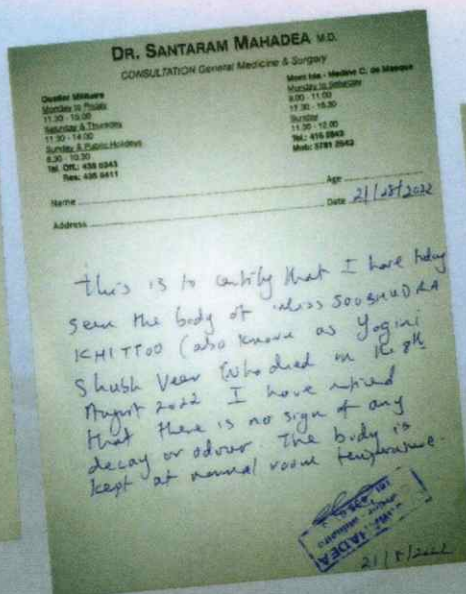 DR. SANTARAM MAHADEA M.D.
CONSULTATION General Medicine & Surgery
Quartier Militaire
Monday to Friday
11.30 - 15.00
Saturday & Thursday
11.30 - 14.00
Sunday & Public Holidays
8.30 - 10.30
Tel. Off.: 435 0343
Res.: 435 5411
Mont Ida - Medine C. de Masque
Monday to Saturday
8.00 - 11.00
17.30 - 18.30
Sunday
11.00 - 12.00
Tel.: 416 0843
Mob: 5781 2643
Name
Age
Address
Date 21/08/2022
this is to certify that I have today
seen the body of Miss SOOBHUDRA
KHITTOO (also known as Yogini
Shubh Veer who died on the 8th
August 2022 I have noticed
that there is no sign of any
decay or odour. The body is
kept at normal room temperature.
MAHADEA
21/8/2022